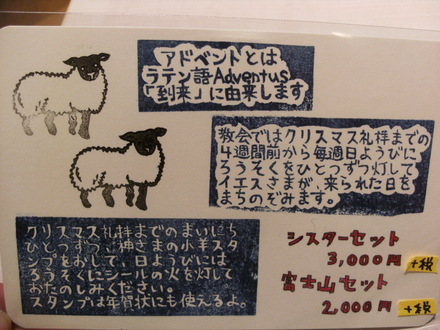 アドベントとは
ラテン語Adventus
「到来」に由来します
教会ではクリスマス礼拝までの
4週間前から毎週日ようびに
ろうそくをひとつずつ灯して
イエスさまが、来られた日を
まちのぞみます。
クリスマス礼拝までのまいにち
ひとつずつ、神さまの小羊スタ
ンプをおして、日ようびには
ろうそくにシールの火を灯して
おたのしみください。
スタンプは年賀状にも使えるよ。
シスターセット
3,000円 +税
富士山セット
2,000円 +税